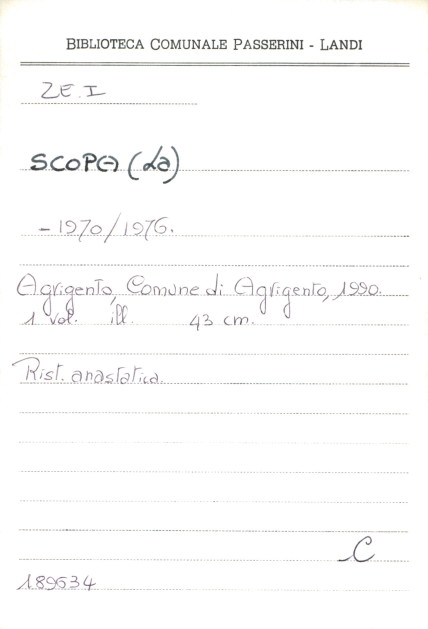 BIBLIOTECA COMUNALE PASSERINI - LANDI
ZE.I
SCOPA (La)
- 1970/1976.
Agrigento, Comune di Agrigento, 1990.
1 vol. ill. 43 cm.
Rist. anastatica.
C
189634